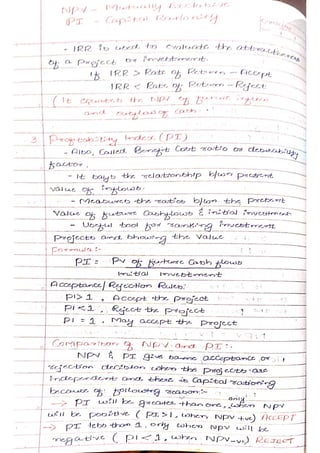 NPV - Mutually Exclusive
PI - Capital Rationing
- IRR is used to evaluate the attractiveness
of a project or investment.
If IRR > Rate of Return - Accept
IRR < Rate of Return - Reject
( It equates the NPV of future inflows
and outflows of cash
3. Profitability Index (PI)
- Also, called Benefit Cost ratio or desirability
factor.
- It says the relationship b/wn present
value of inflows.
- Measures the ratios b/wn the present
value of future cashflows & initial investment
- Useful tool for ranking investment
projects and showing the value
Formula:-
PI = PV of future cash flows
Initial Investment
Acceptance/Rejection Rules:
PI > 1 , Accept the project
PI < 1 , Reject the project
PI = 1 , May accept the project
Comparison of NPV and PI :-
NPV & PI give same acceptance or
rejection decision when the projects are
independent and there is capital rationing
because of following reason:-
→ PI will be greater than one, only when NPV
will be positive ( PI > 1, when NPV +ve) ACCEPT
→ PI less than 1, only when NPV will be
negative ( PI < 1, when NPV -ve) REJECT